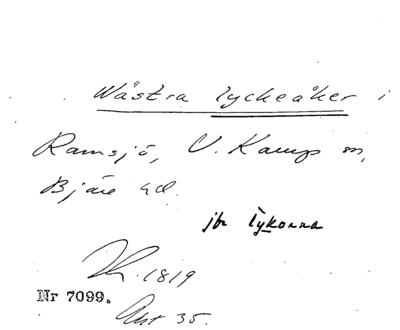 Wästra lyckeåker i
Ramsjö, V. Karup sn,
Bjäre hd.
jfr lykorna
1819
Nr 7099.
Akt 35.